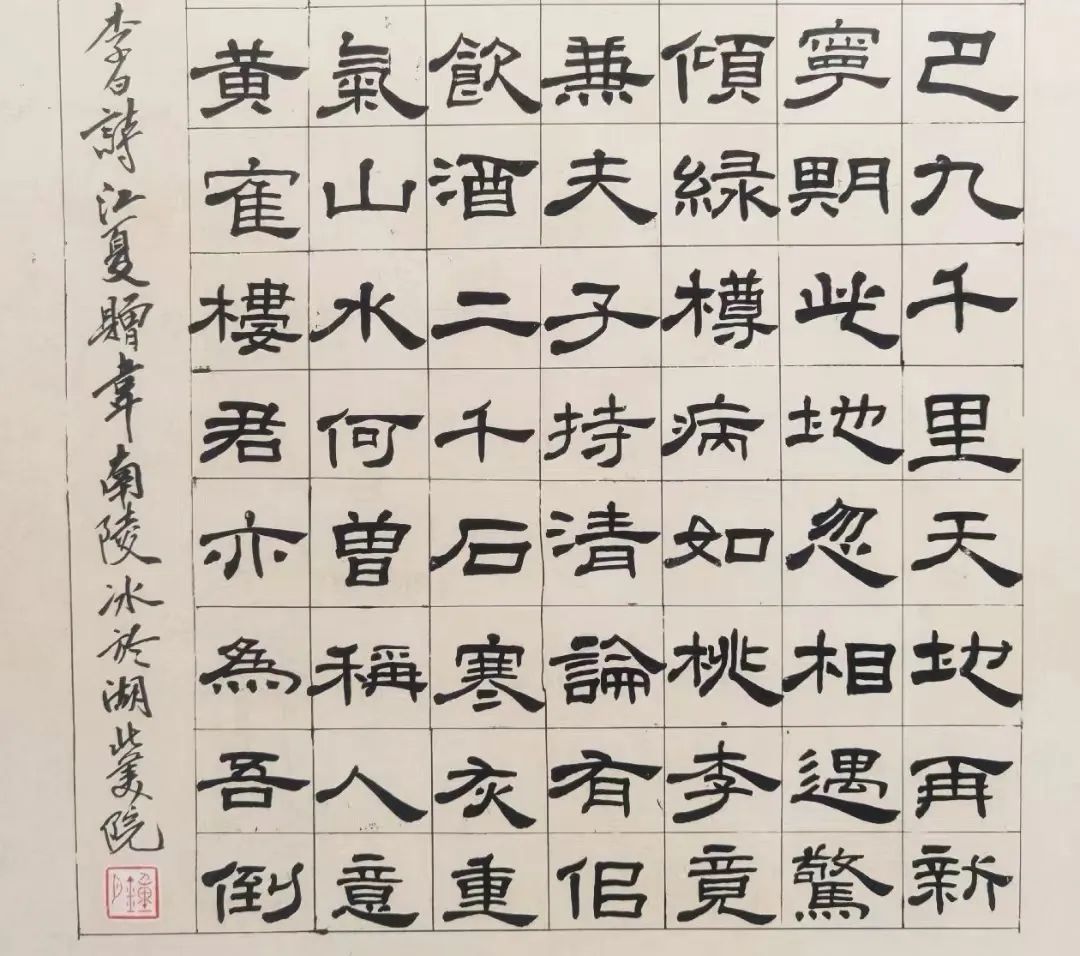 已九千里天地再新
寧期此地忽相遇驚
傾緑樽病如桃李竟
兼夫子持清論有佀
飲酒二千石寒灰重
氣山水何曾稱人意
黃寉樓君亦為吾倒
李白詩江夏贈韋南陵冰於湖北美院